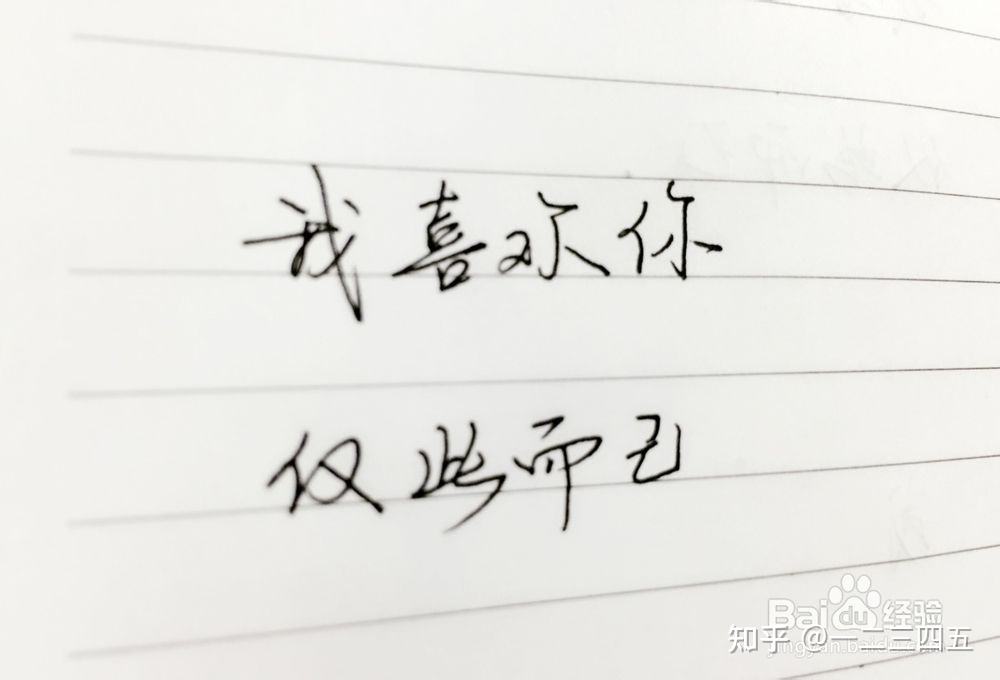 我喜欢你
仅此而已
Baidu经验
jingyan.baidu.com
知乎 @一二三四五